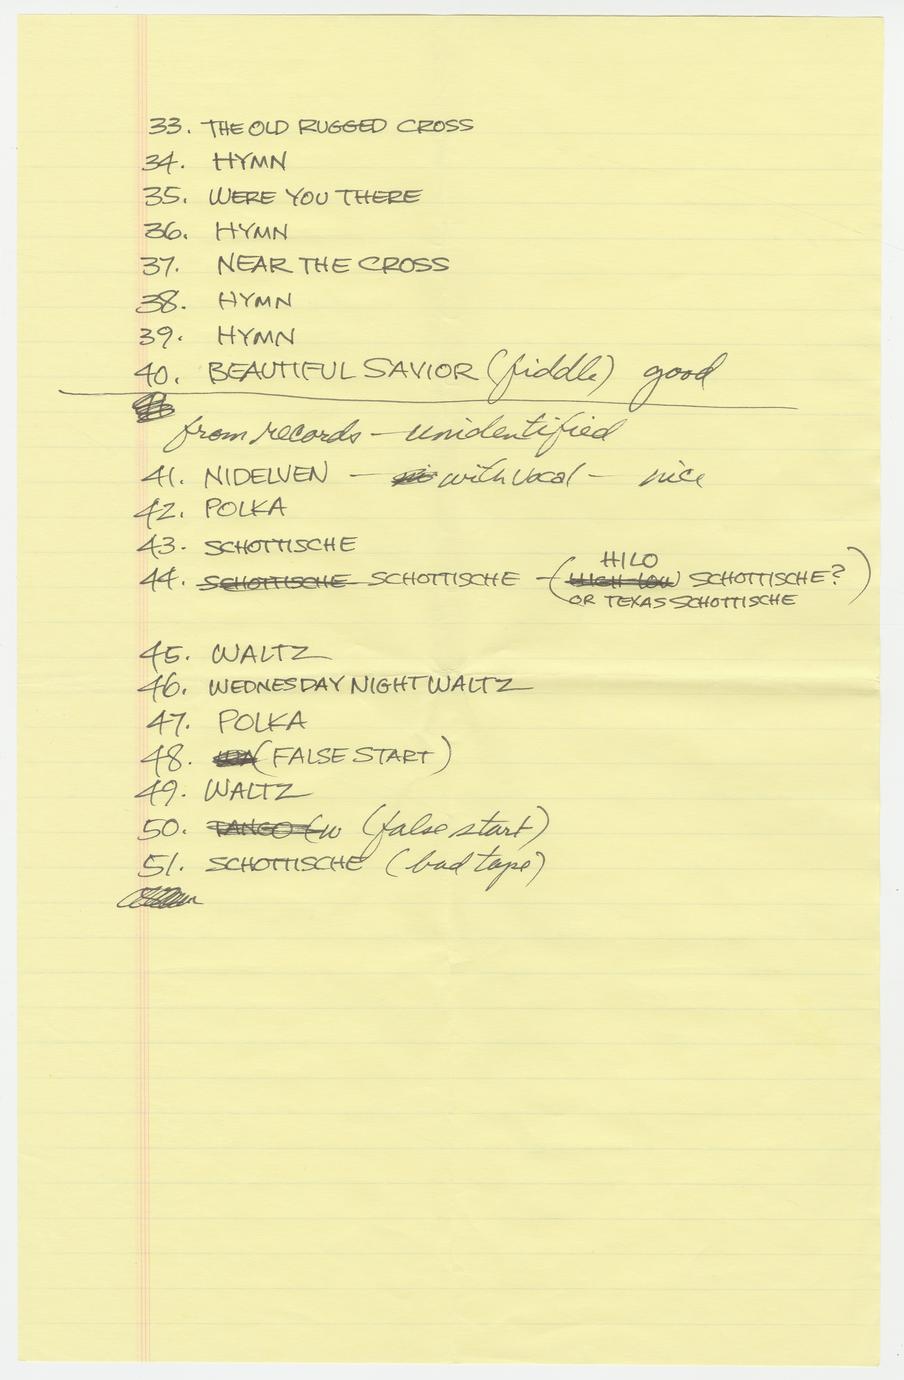 33. THE OLD RUGGED CROSS
34. HYMN
35. WERE YOU THERE
36. HYMN
37. NEAR THE CROSS
38. HYMN
39. HYMN
40. BEAUTIFUL SAVIOR (fiddle) good
from records - unidentified
41. NIDELVEN - with vocal - nice
42. POLKA
43. SCHOTTISCHE
HILO
44. SCHOTTISCHE SCHOTTISCHE - (HIGH-LOW SCHOTTISCHE?)
OR TEXAS SCHOTTISCHE
45. WALTZ
46. WEDNESDAY NIGHT WALTZ
47. POLKA
48. (FALSE START)
49. WALTZ
50. TANGO (w (false start)
51. SCHOTTISCHE (bad tape)